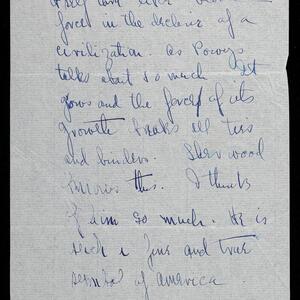 force in the decline of a
civilization. As Powys
talks about so much. It
grows and the force of its
growth breaks all ties
and binders. Sherwood
knows this. I think
of him so much. He is
such a fine and true
symbol of america